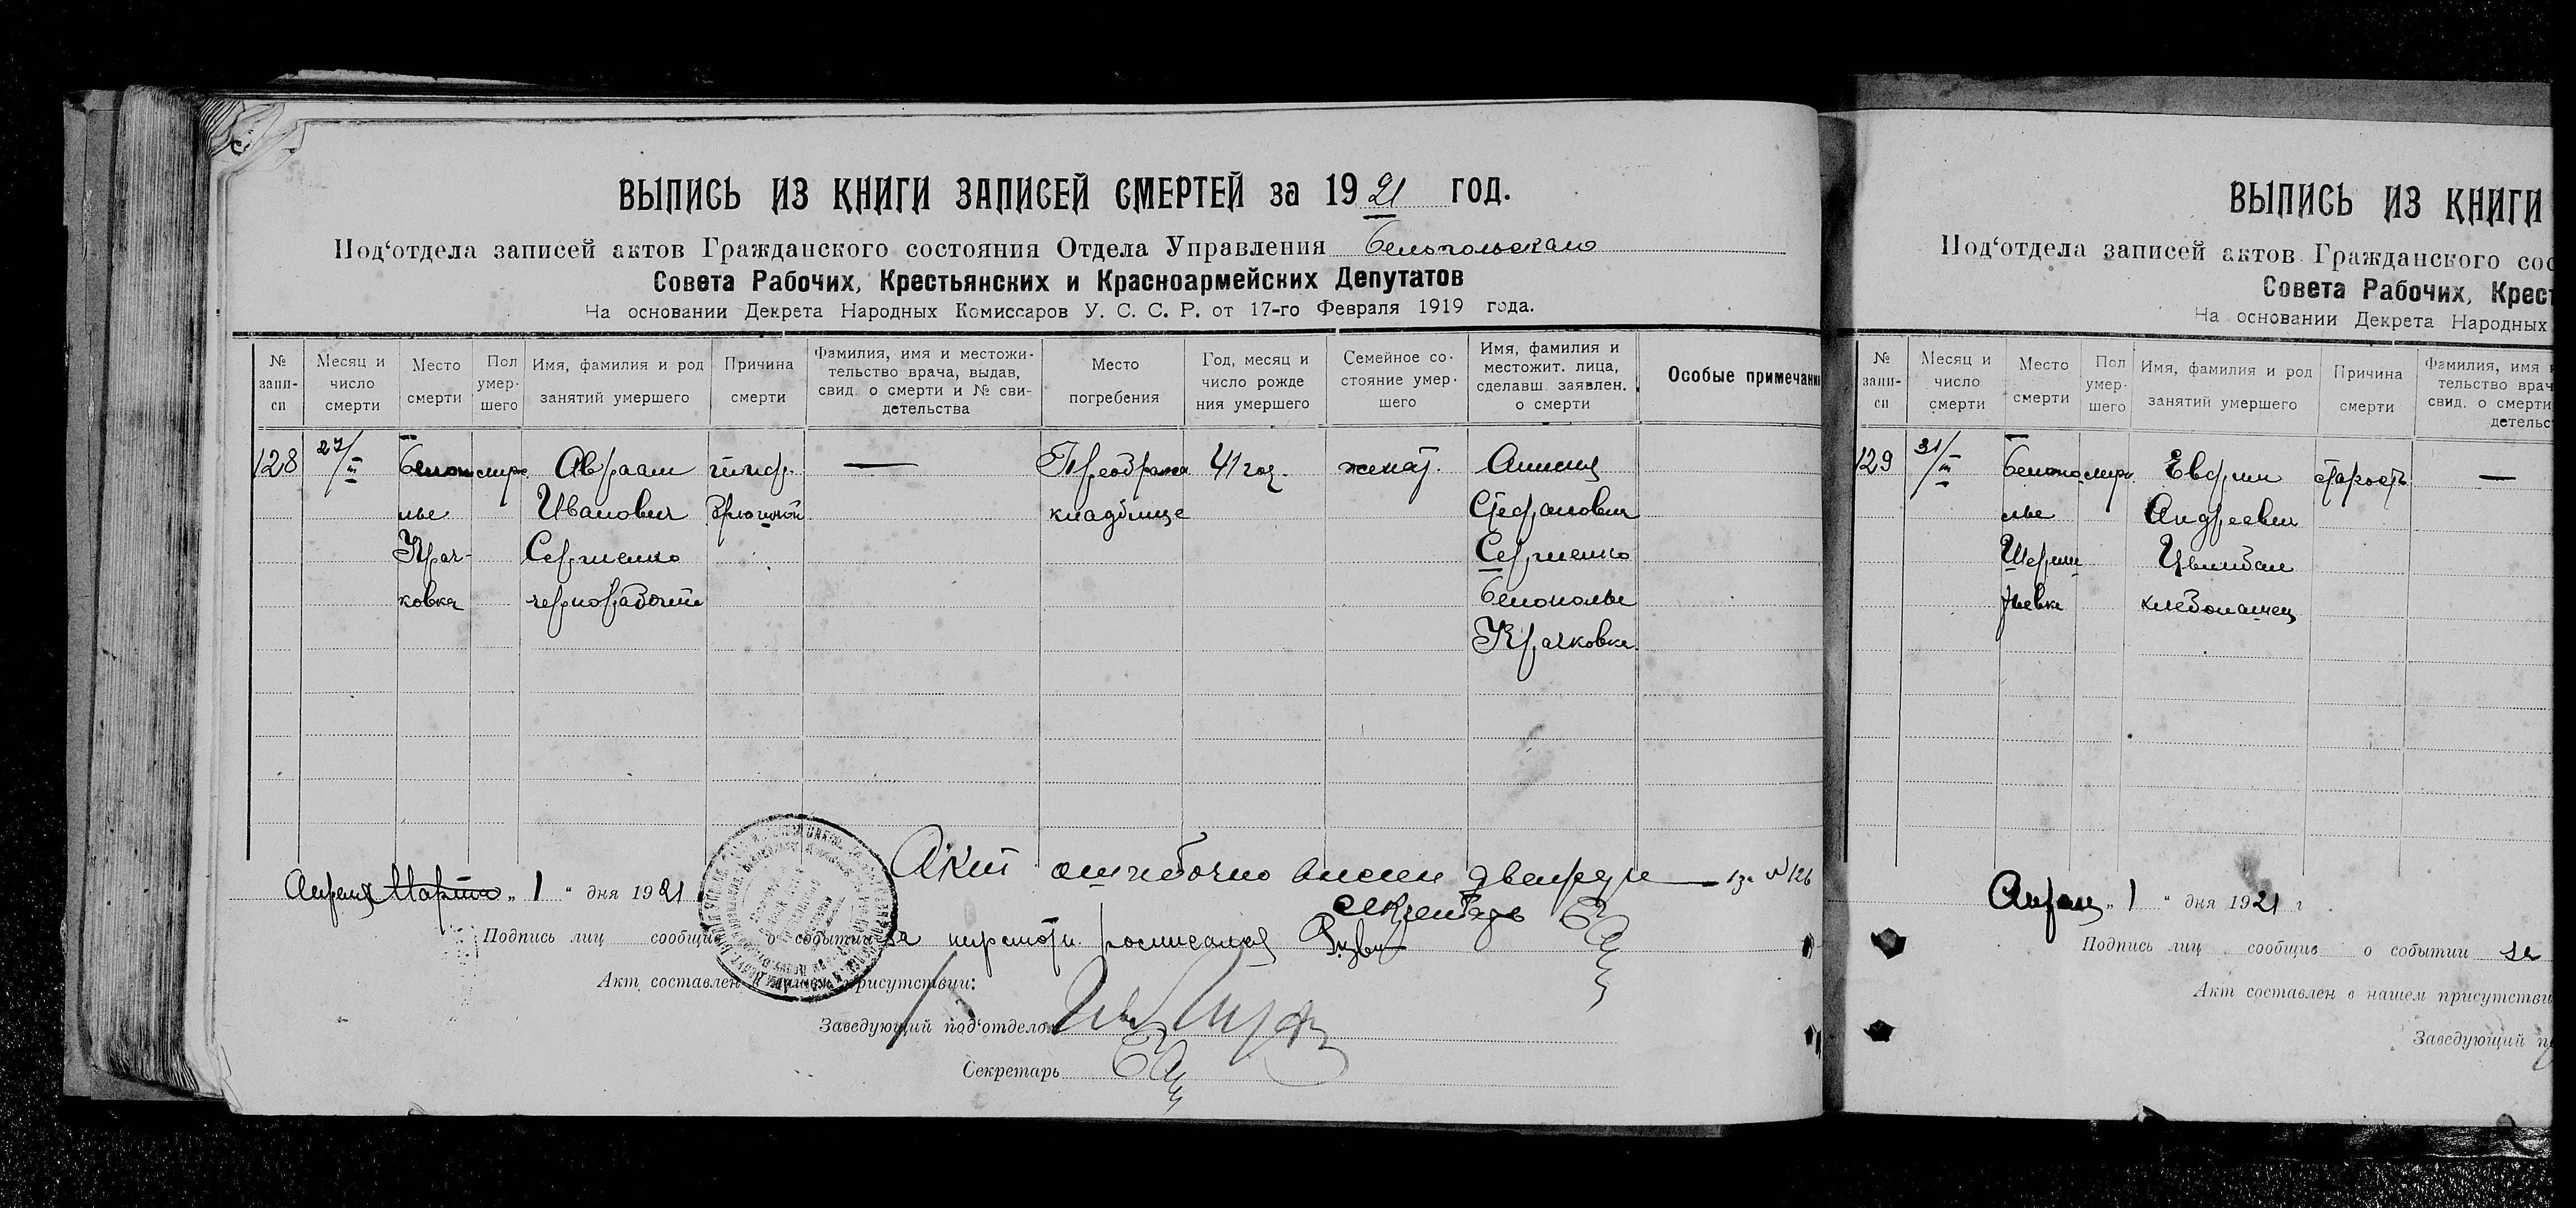 ВЫПИСЬ ИЗ КНИГИ ЗАПИСЕЙ СМЕРТЕЙ за 1921 год.
Под‘отдела записей актов Гражданского состояния Отдела Управления Белопольского
Совета Рабочих, Крестьянских и Красноармейских Депутатов
На основании Декрета Народных Комиссаров У. С. С. Р. от 17-го Февраля 1919 года.
№ запи-си
Месяц и число смерти
Место смерти
Пол умер-шего
Имя, фамилия и род занятий умершего
Причина смерти
Фамилия, имя и местожи-тельство врача, выдав, свид. о смерти и № сви-детельства
Место погребения
Год, месяц и число рожде ния умершего
Семейное со-стояние умер-шего
Имя, фамилия и местожит. лица, сделавш. заявлен. о смерти
Особые примечани
128 27/III Белопо муж. Авраам тиф — Преображ 41 год. женат.
лье Иванович брюшной кладбище Стефанович
Крач- Сергиенко Сергиенко
ковка чернорабочий Белополье
Крачковка
Акт ошибочно внесен за № 126
Секретарь
Апреля Марта „ 1 “ дня 1921
Подпись лиц сообщив о событии за расписался
Акт составлен в нашем присутствии:
Заведующий под‘отделом
Секретарь
ВЫПИСЬ ИЗ КНИГИ
Под‘отдела записей актов Гражданского сос
Совета Рабочих, Крест
На основании Декрета Народных
№ запи-си
Месяц и число смерти
Место смерти
Пол умер-шего
Имя, фамилия и род занятий умершего
Причина смерти
Фамилия, имя и тельство врач свид. о смерти детельс
129 31/III Белопо муж. старость —
лье Андреевич
хлебопашец
Апреля „ 1 “ дня 1921 г
Подпись лиц сообщив о событии за
Акт составлен в нашем присутстви
Заведующий п